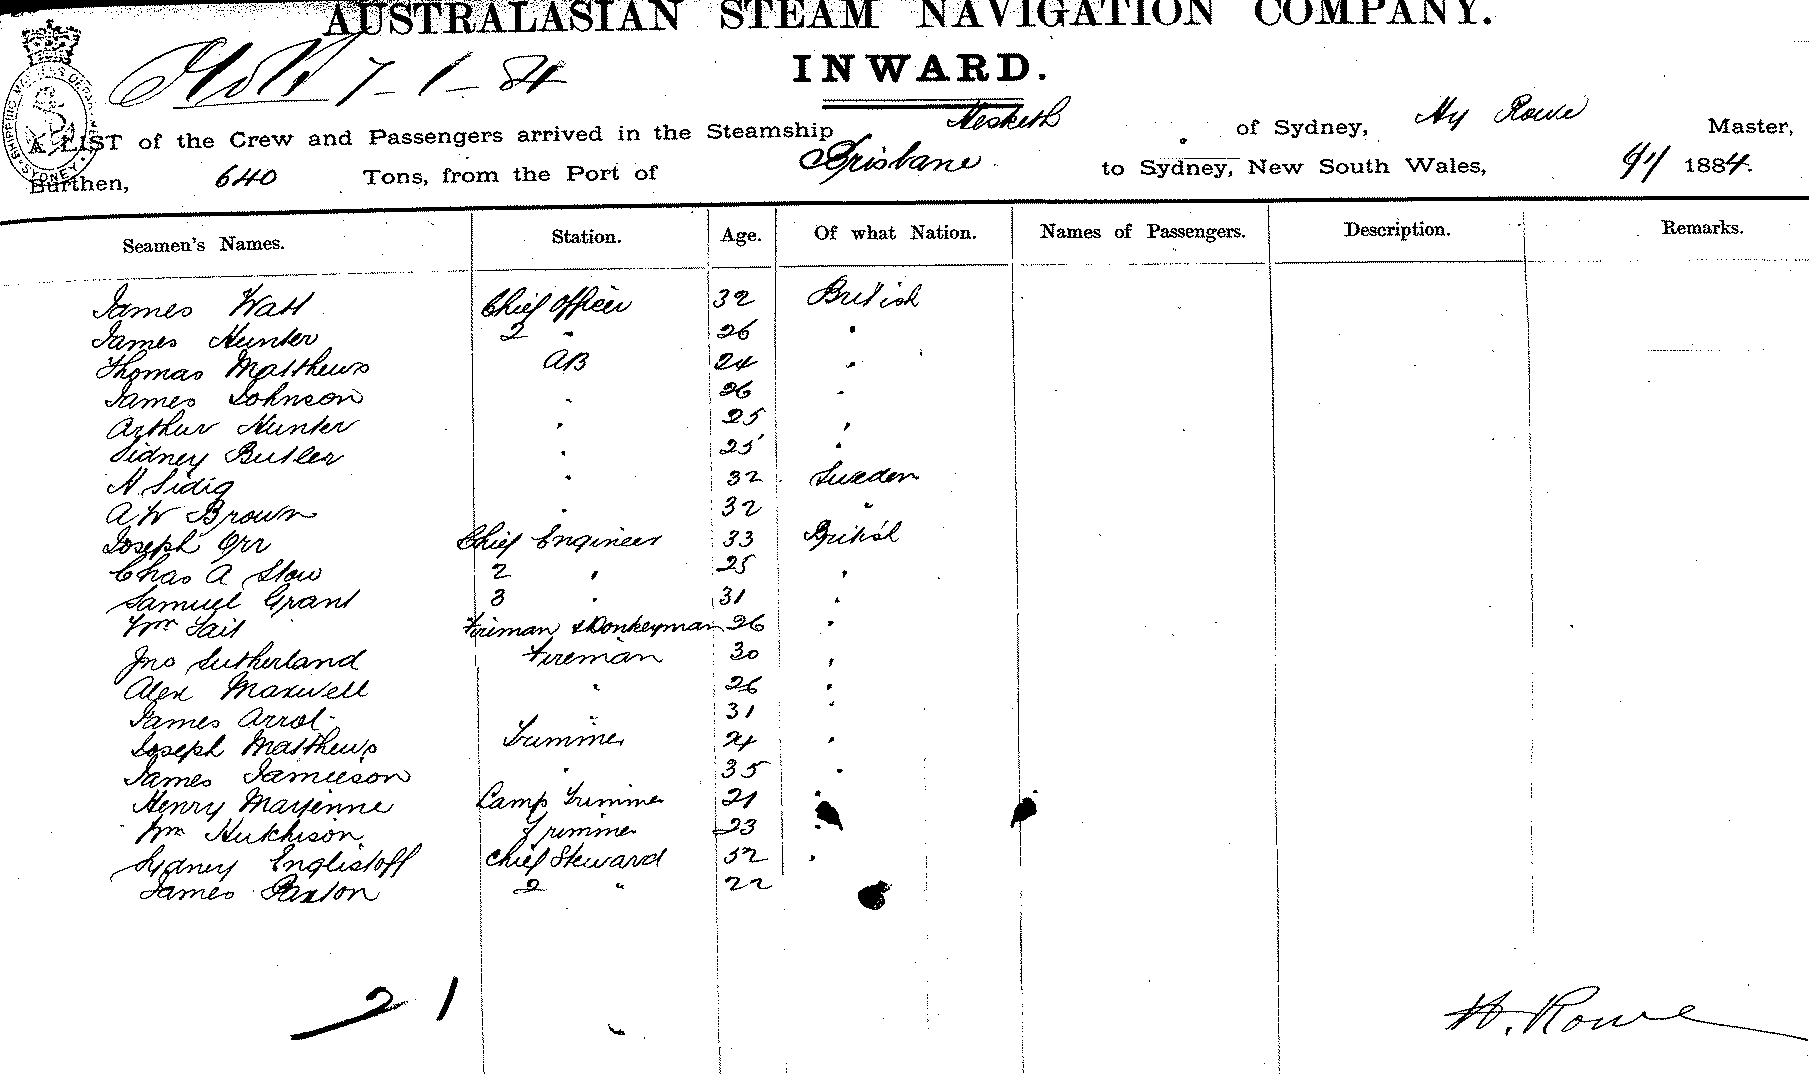 AUSTRALASIAN STEAM NAVIGATION COMPANY.
7-1-84
INWARD.
A LIST of the Crew and Passengers arrived in the Steamship Hesketh of Sydney, Hy Rowe Master,
Burthen, 640 Tons, from the Port of Brisbane to Sydney, New South Wales, 1884.
Seamen's Names. Station. Age. Of what Nation. Names of Passengers. Description. Remarks.
James Watt Chief Officer 32 British
James Hunter 2 " 26 "
Thomas Matthews AB 24 "
James Johnson " 26 "
Arthur Hunter " 25 "
Sidney Butler " 25 "
A Sidig " 32 Sweden
A W Brown " 32 "
Joseph Orr Chief Engineer 33 British
Chas A Stow 2 " 25 "
Samuel Grant 3 " 31 "
Wm Tait Fireman & Donkeyman 26 "
Jno Sutherland Fireman 30 "
Alex Maxwell " 26 "
James Arrol " 31 "
Joseph Matthews Trimmer 24 "
James Jamieson " 35 "
Henry Lamp Trimmer 21 "
Wm Hutchison Trimmer 23 "
Sydney Chief Steward 52 "
James Paxton 2 " 22
21
H. Rowe